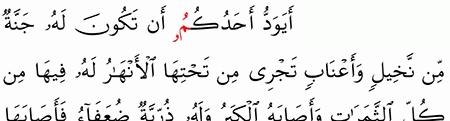 أَيَوَدُّ أَحَدُكُمُۥ أَن تَكُونَ لَهُۥ جَنَّةٌ
مِّن نَّخِيلٍ وَأَعْنَابٍ تَجْرِى مِن تَحْتِهَا ٱلْأَنْهَٰرُ لَهُۥ فِيهَا مِن
كُلِّ ٱلثَّمَرَٰتِ وَأَصَابَهُ ٱلْكِبَرُ وَلَهُۥ ذُرِّيَّةٌ ضُعَفَآءُ فَأَصَابَهَآ